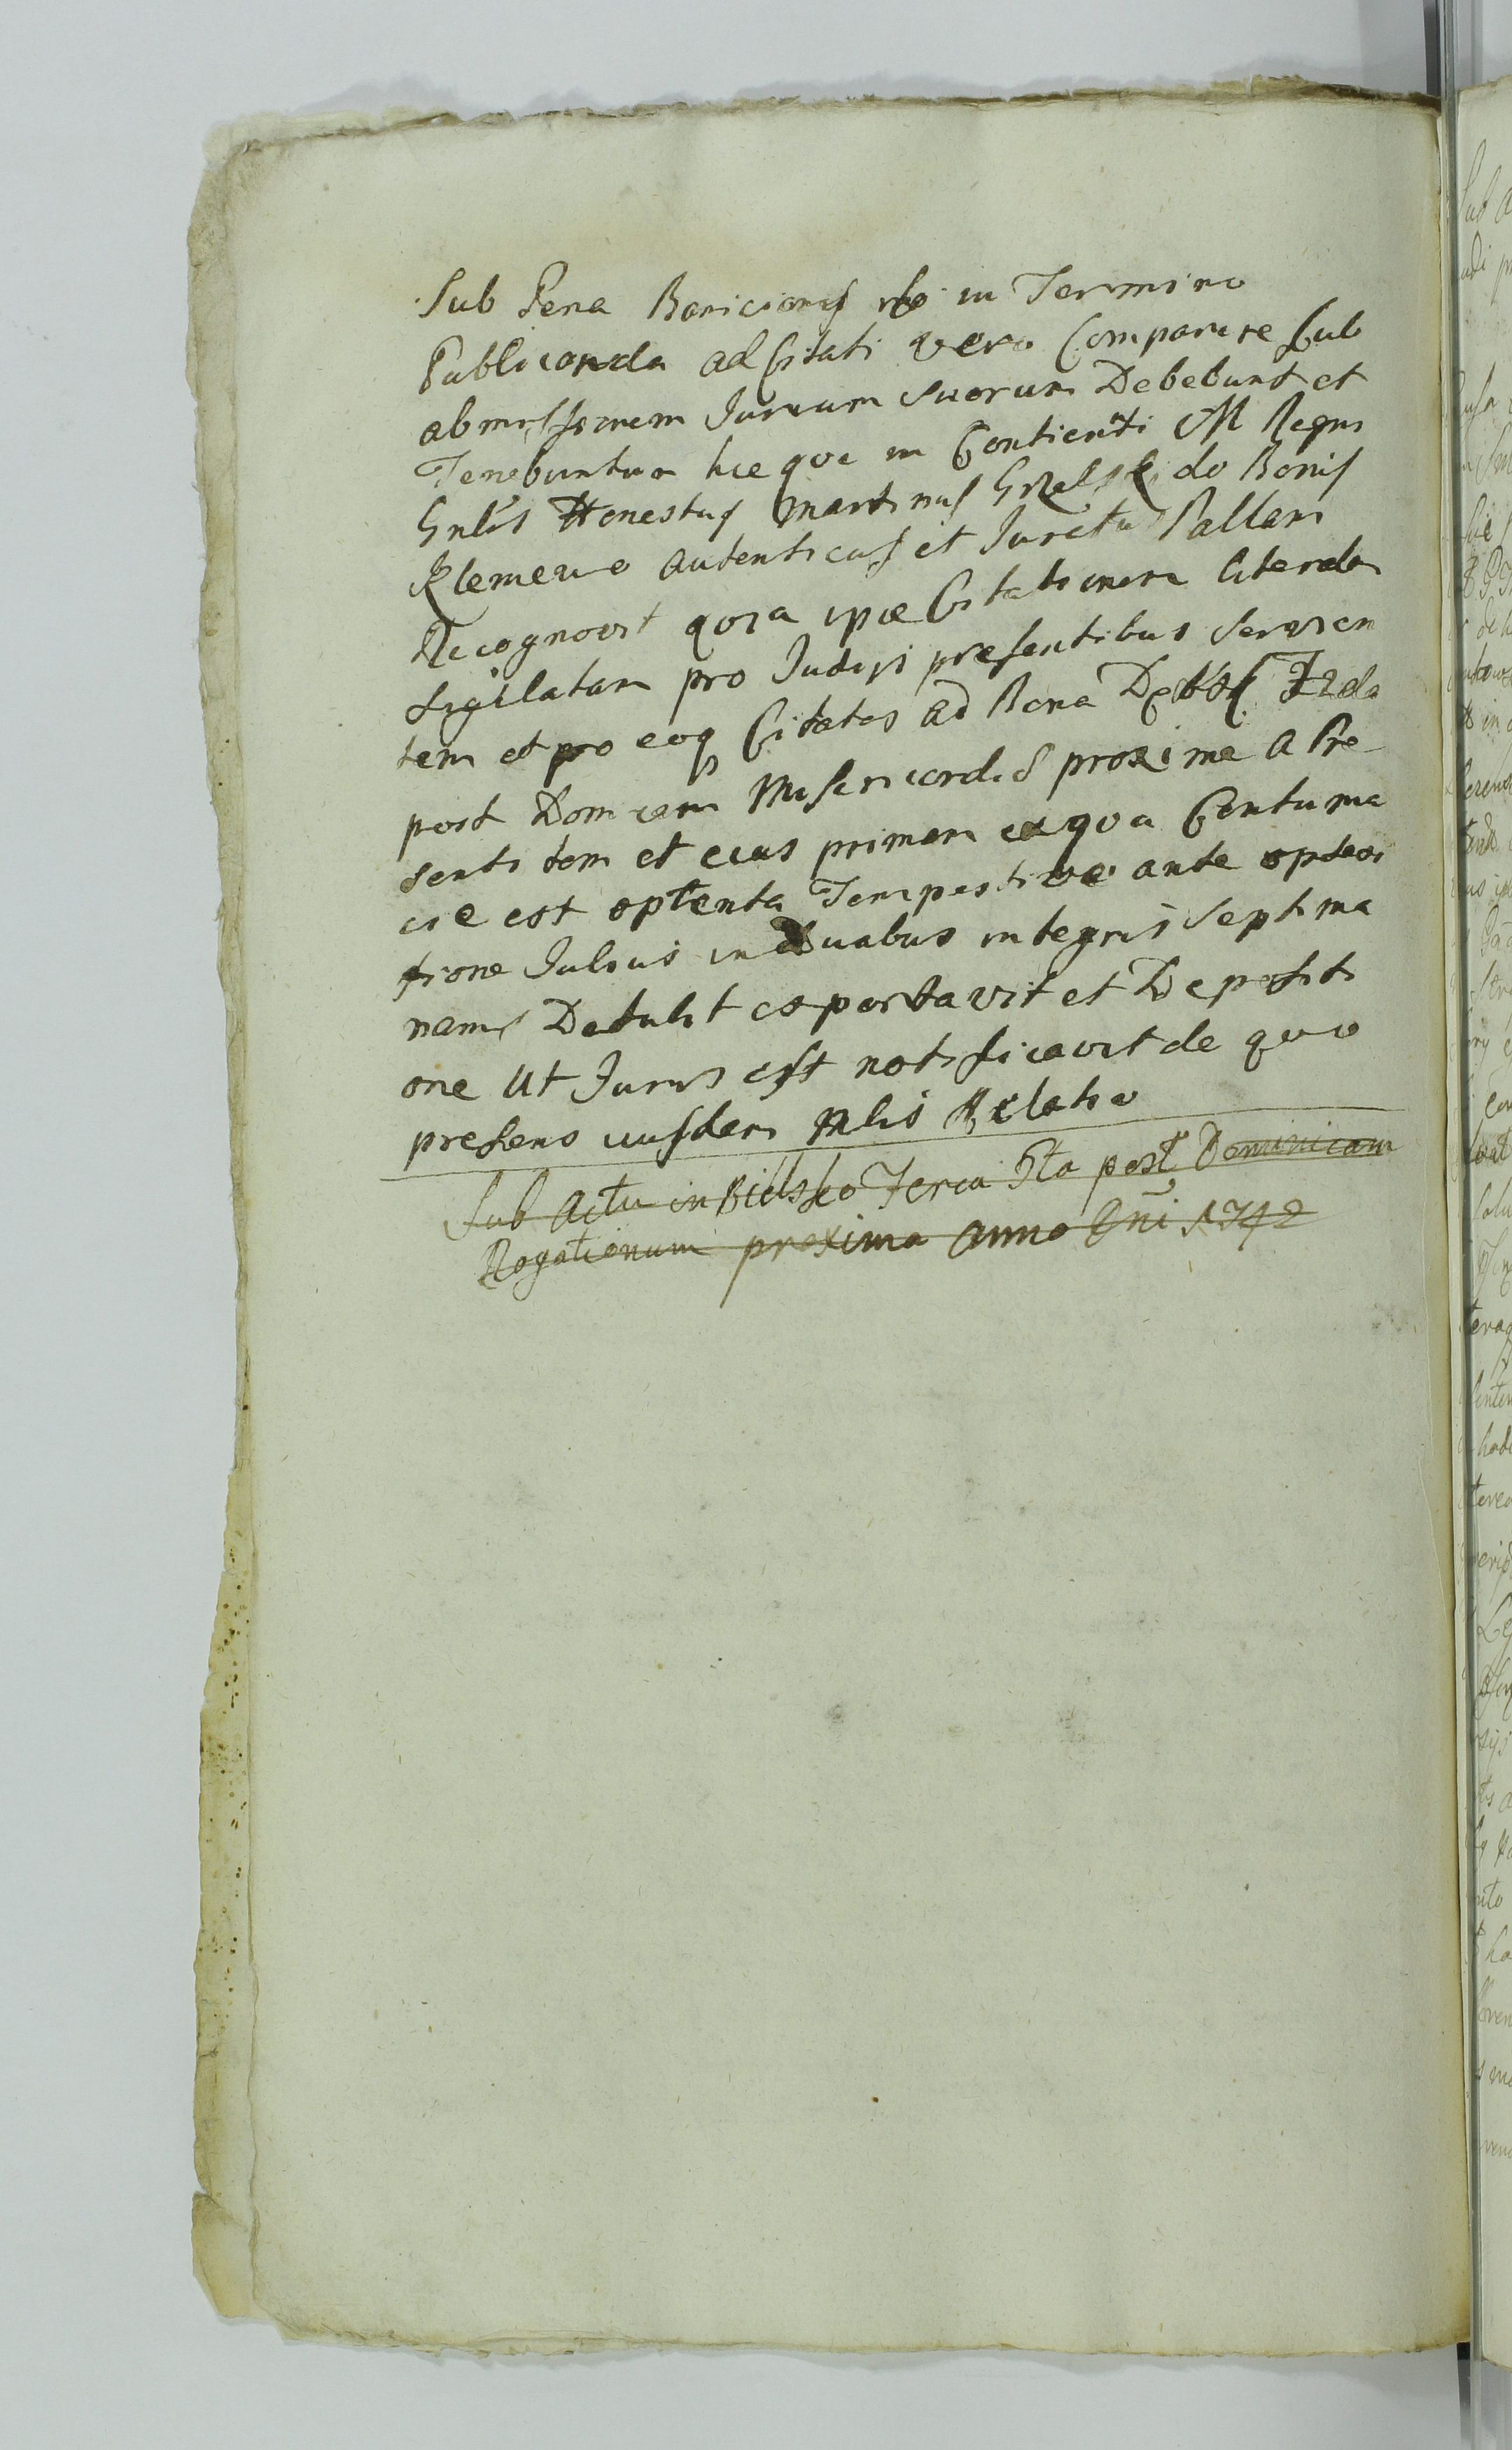 Sub Pena Banicionis in Termino
Publicanda ad Citati vero Comparere Sub
abmissionem Jurium Suorum Debebunt et
Tenebuntur hicque in Contienti M Regni
Gnlis Honestus Martinus Grzelski de Bonis
Klemewo autenticus et Juratus Pallam
Recognovit quia ipse Citationem literalem
Sigilatam pro Judys presentibus Servien
tem et pro eoq Citatos ad Bona
post Domcam Misericordie proxime a Pre
senti tem et eius primam ex qua Contuma
cie est optenta Tempestive ante
tione Julius in Duabus integris Septima
nams Detulit coportavit et Depositi
one Ut Juris est notificavit de quo
presens eiusdem Mlis Relatio
Sub Actu in Bielsko Feria 5ta post Dominicam
Rogationum proxima Anno Dni 1742